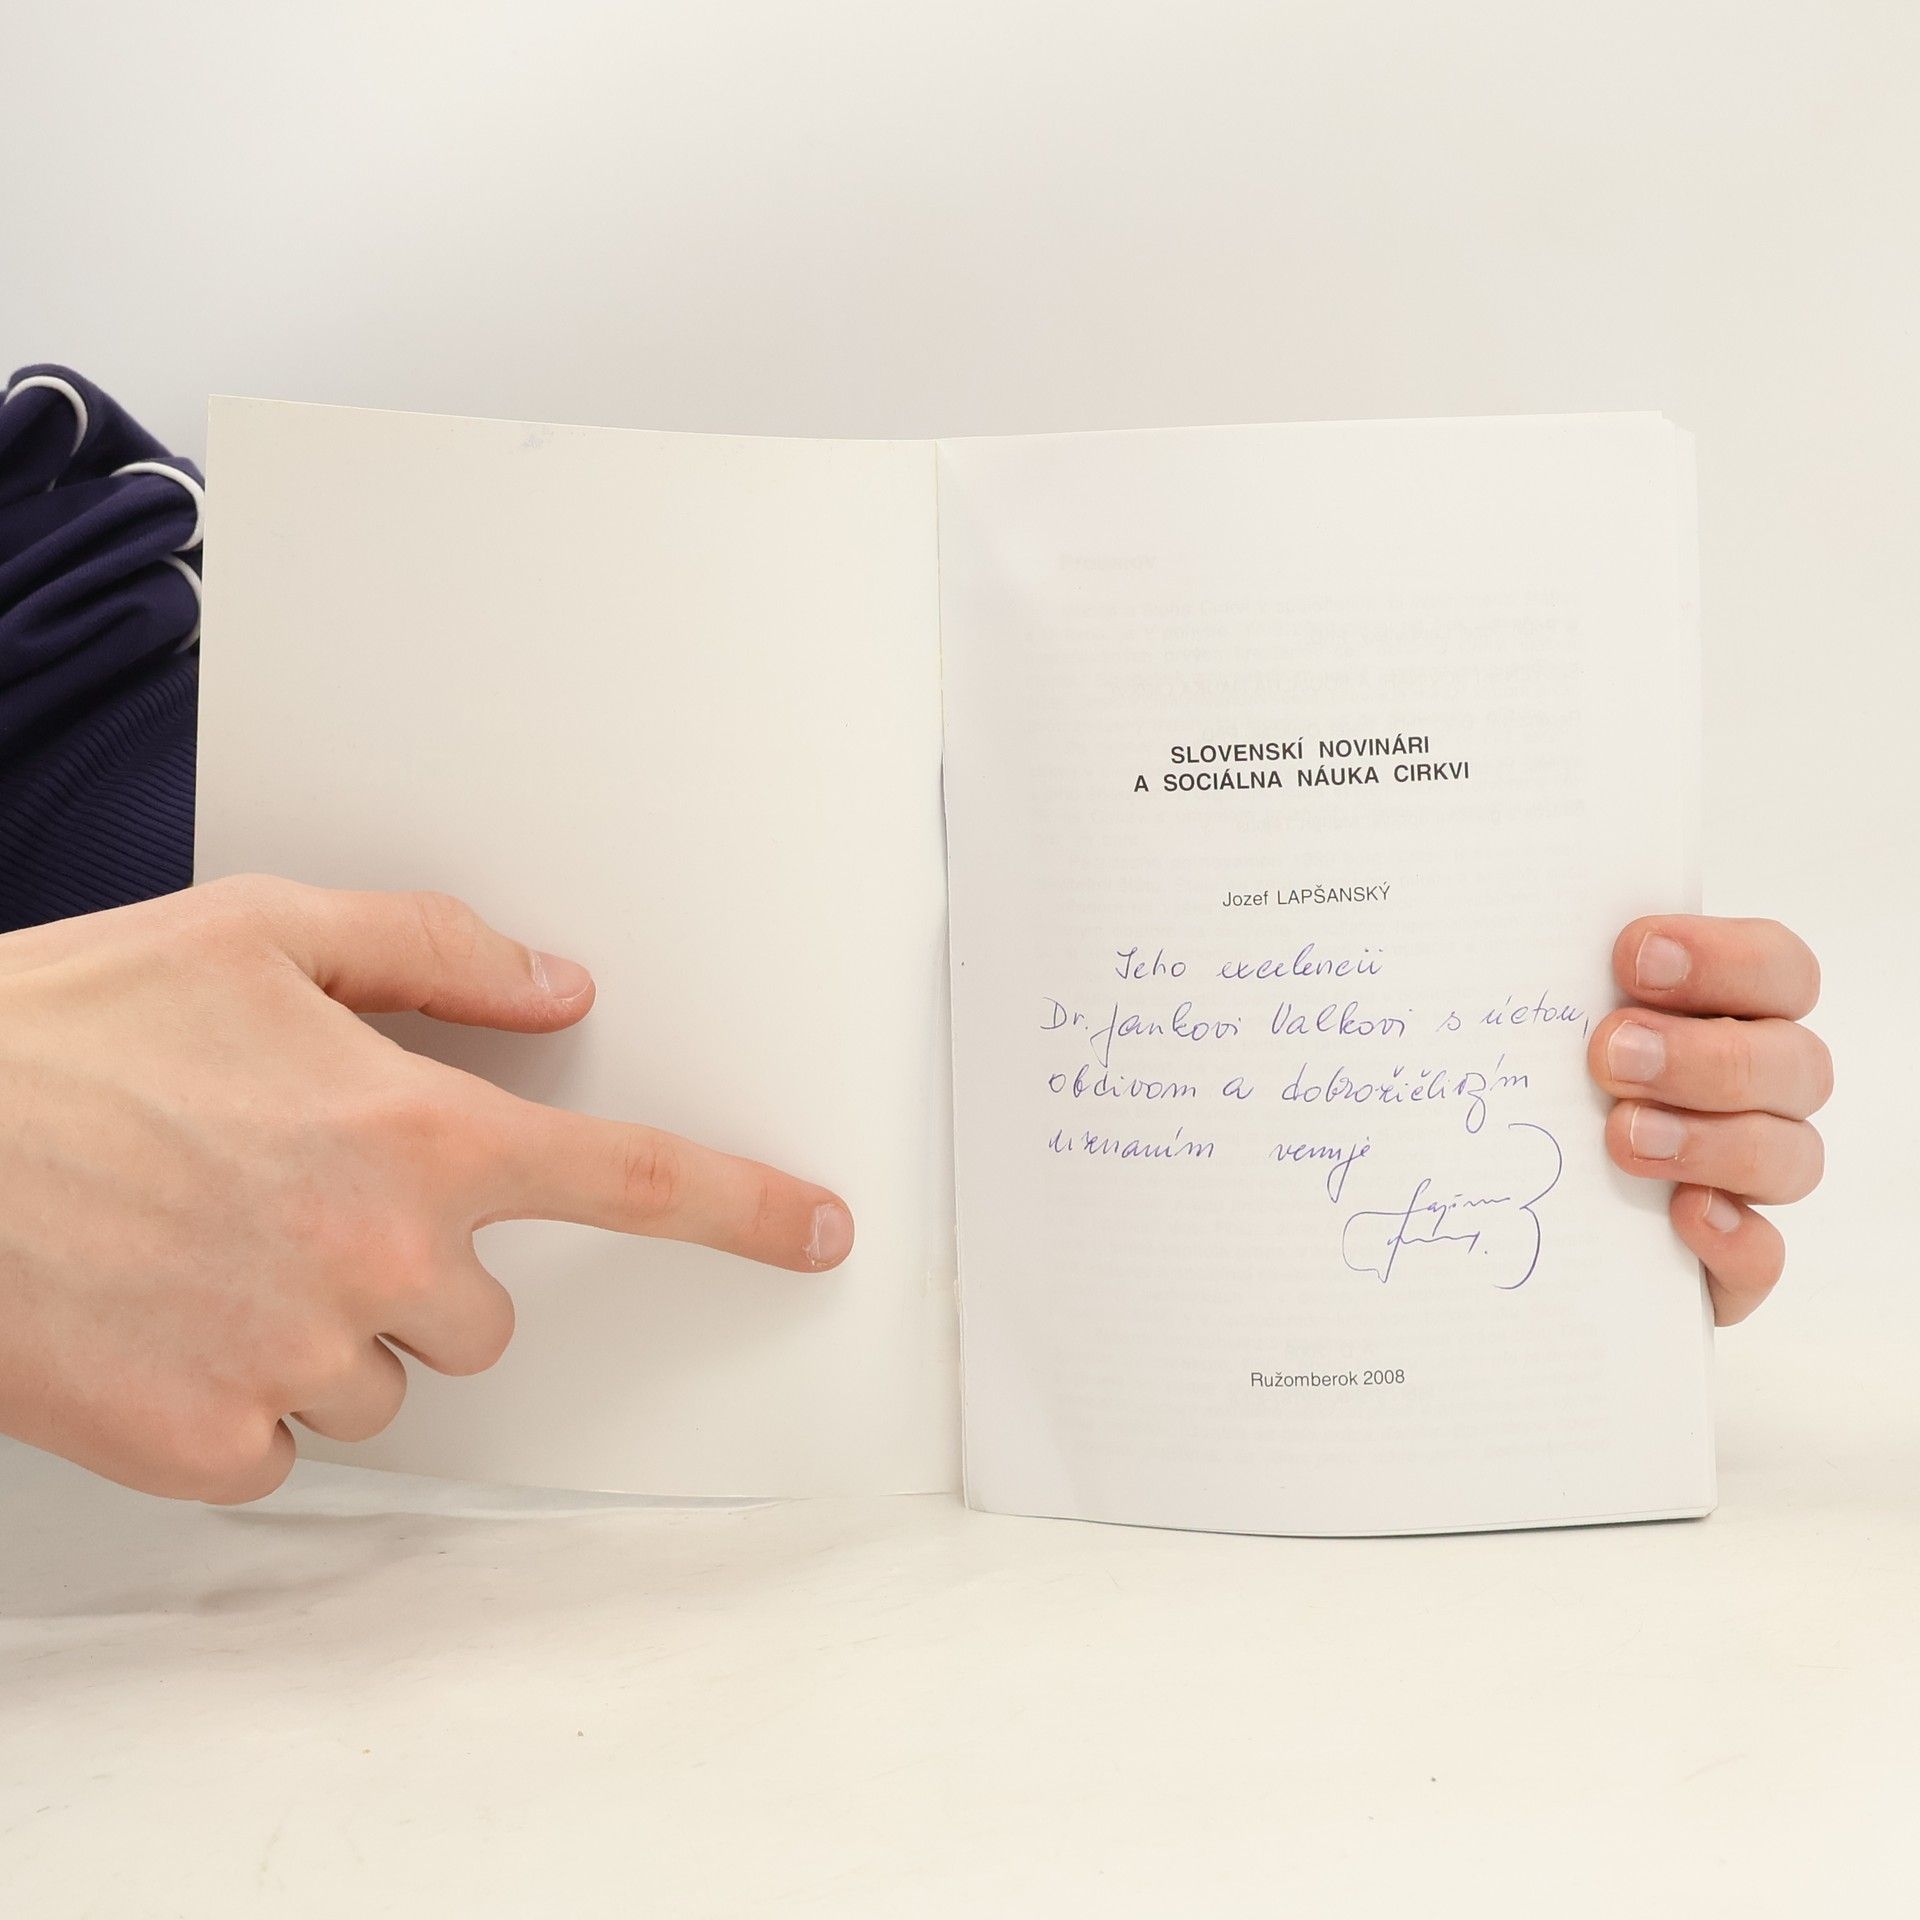 SLOVENSKÍ NOVINÁRI
A SOCIÁLNA NÁUKA CIRKVI
Jozef LAPŠANSKÝ
Jeho excelencii
Dr. Jankovi Valkovi s úctou,
obdivom a dobrožičlivým
uznaním venuje
Ružomberok 2008